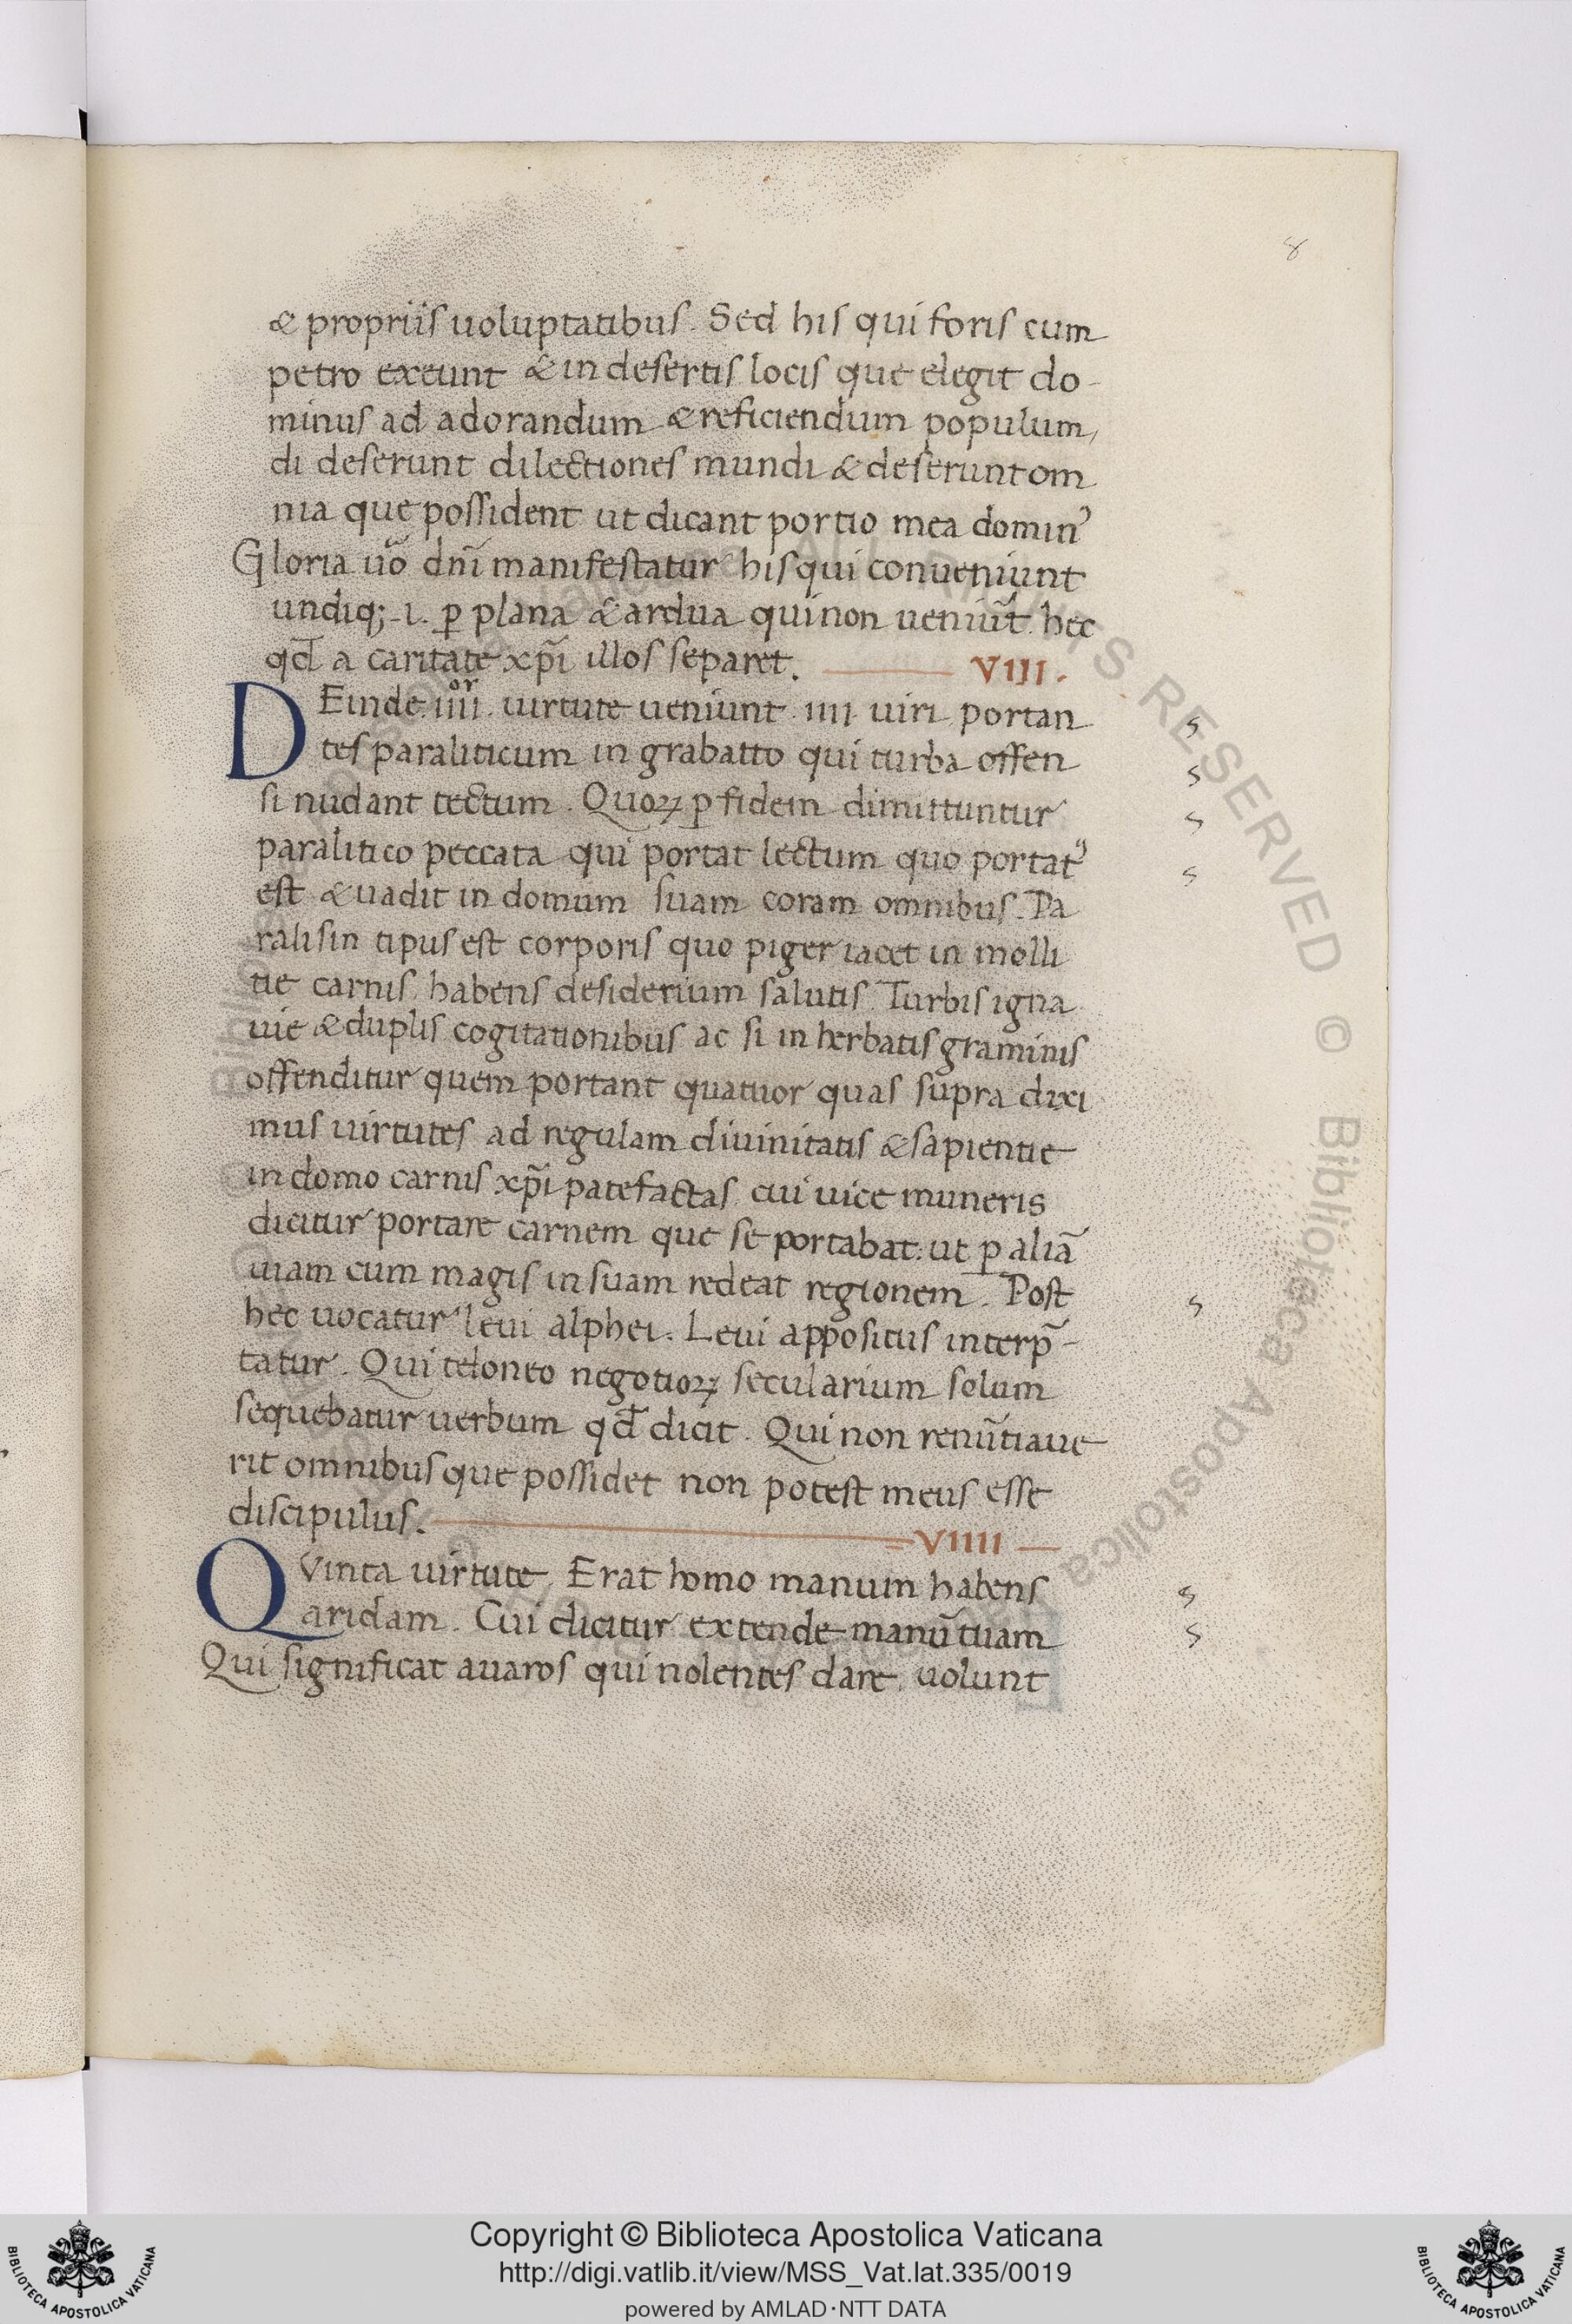 8
& propriis uoluptatibus. Sed his qui foris cum
petro exeunt & in desertis locis que elegit do-
minus ad adorandum & reficiendum populum,
di deserunt dilectiones mundi & deserunt om
nia que possident ut dicant portio mea domin᾽
Gloria uo᷉ dn᷉i manifestatur his qui conueniunt
undiq; .i. ꝑ plana & ardua qui non ueniu᷉t. hec
qd̄ a caritate xp᷉i illos separet. VIII.
DEinde .iiiiᵒʳ. uirtute ueniunt .iiii. uiri portan
tes paraliticum in grabatto qui turba offen
si nudant tectum. Quoꝝ ꝑ fidem dimittuntur
paralitico peccata qui portat lectum quo portat᾽
est & uadit in domum suam coram omnibus. Pa
ralisin tipus est corporis quo piger iacet in molli
tie carnis, habens desiderium salutis. Turbis igna
uie & duplis cogitationibus ac si in herbatis graminis
offenditur quem portant quatuor quas supra dixi
mus uirtutes ad regulam diuinitatis & sapientie
in domo carnis xp᷉i patefactas cui uice muneris
dicitur portare carnem que se portabat: ut ꝑ aliã
uiam cum magis in suam redeat regionem. Post
hec uocatur leui alphei. Leui appositus interp᷉-
tatur. Qui teloneo negotioꝝ secularium solum
sequebatur uerbum qd̄ dicit. Qui non renu᷉tiaue
rit omnibus que possidet non potest meus esse
discipulus. VIIII
QVinta uirtute, Erat homo manum habens
aridam. Cui dicitur extende manu᷉ tuam
Qui significat auaros qui nolentes dare, uolunt
Copyright © Biblioteca Apostolica Vaticana
http://digi.vatlib.it/view/MSS_Vat.lat.335/0019
powered by AMLAD·NTT DATA
BIBLIOTECA APOSTOLICA VATICANA
BIBLIOTECA APOSTOLICA VATICANA